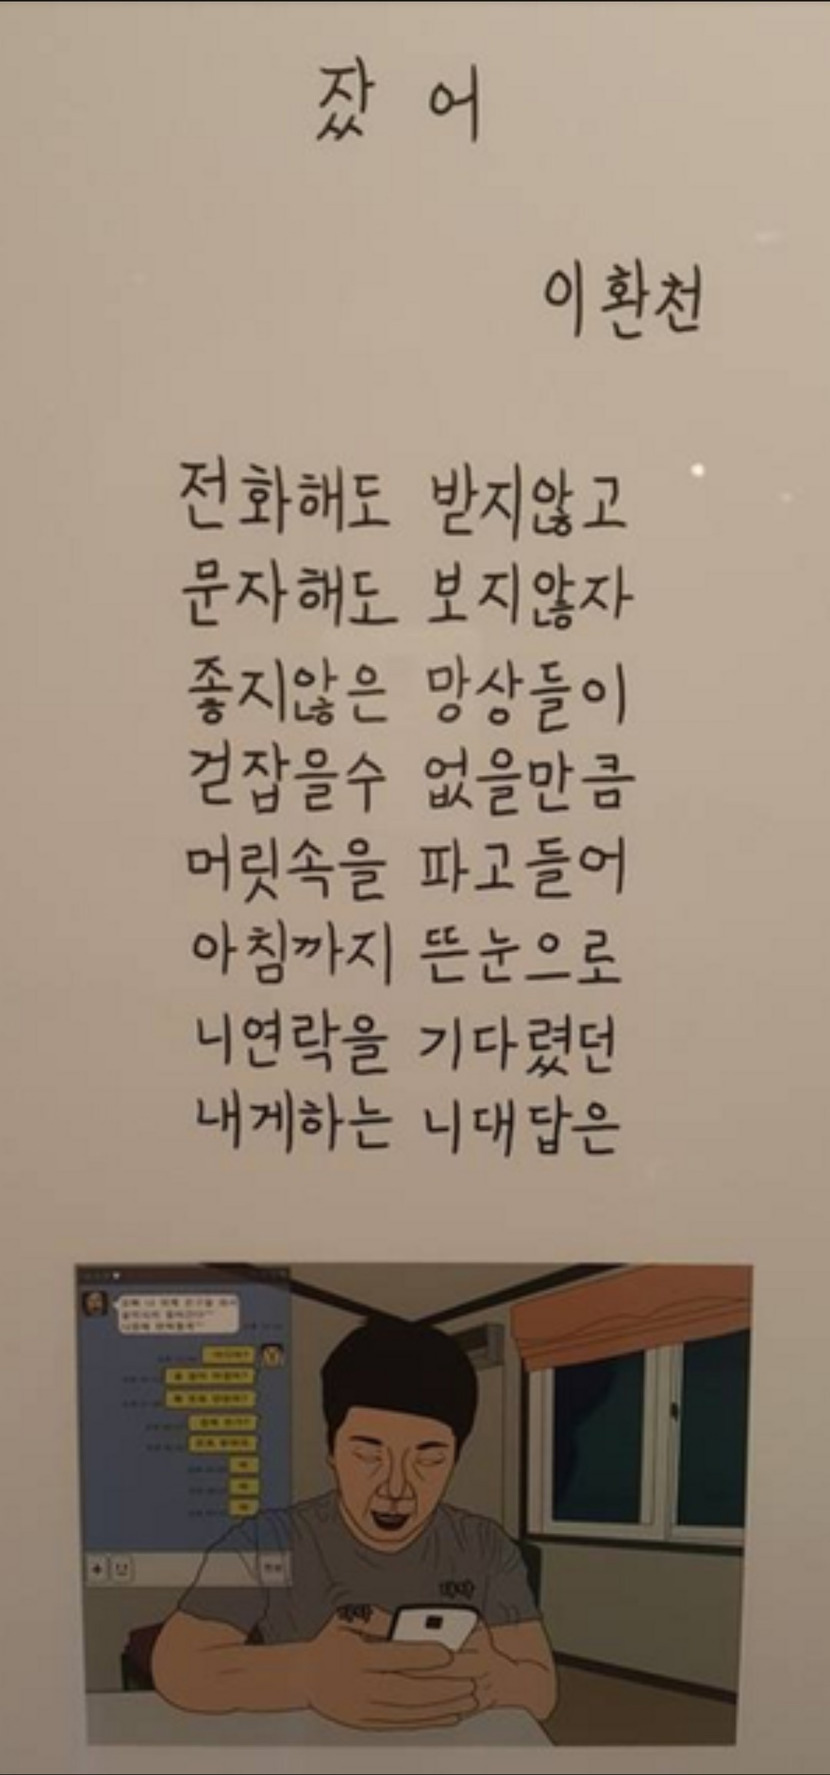 잤어
이환천
전화해도 받지않고
문자해도 보지않자
좋지않은 망상들이
걷잡을수 없을만큼
머릿속을 파고들어
아침까지 뜬눈으로
니연락을 기다렸던
내게하는 니대답은